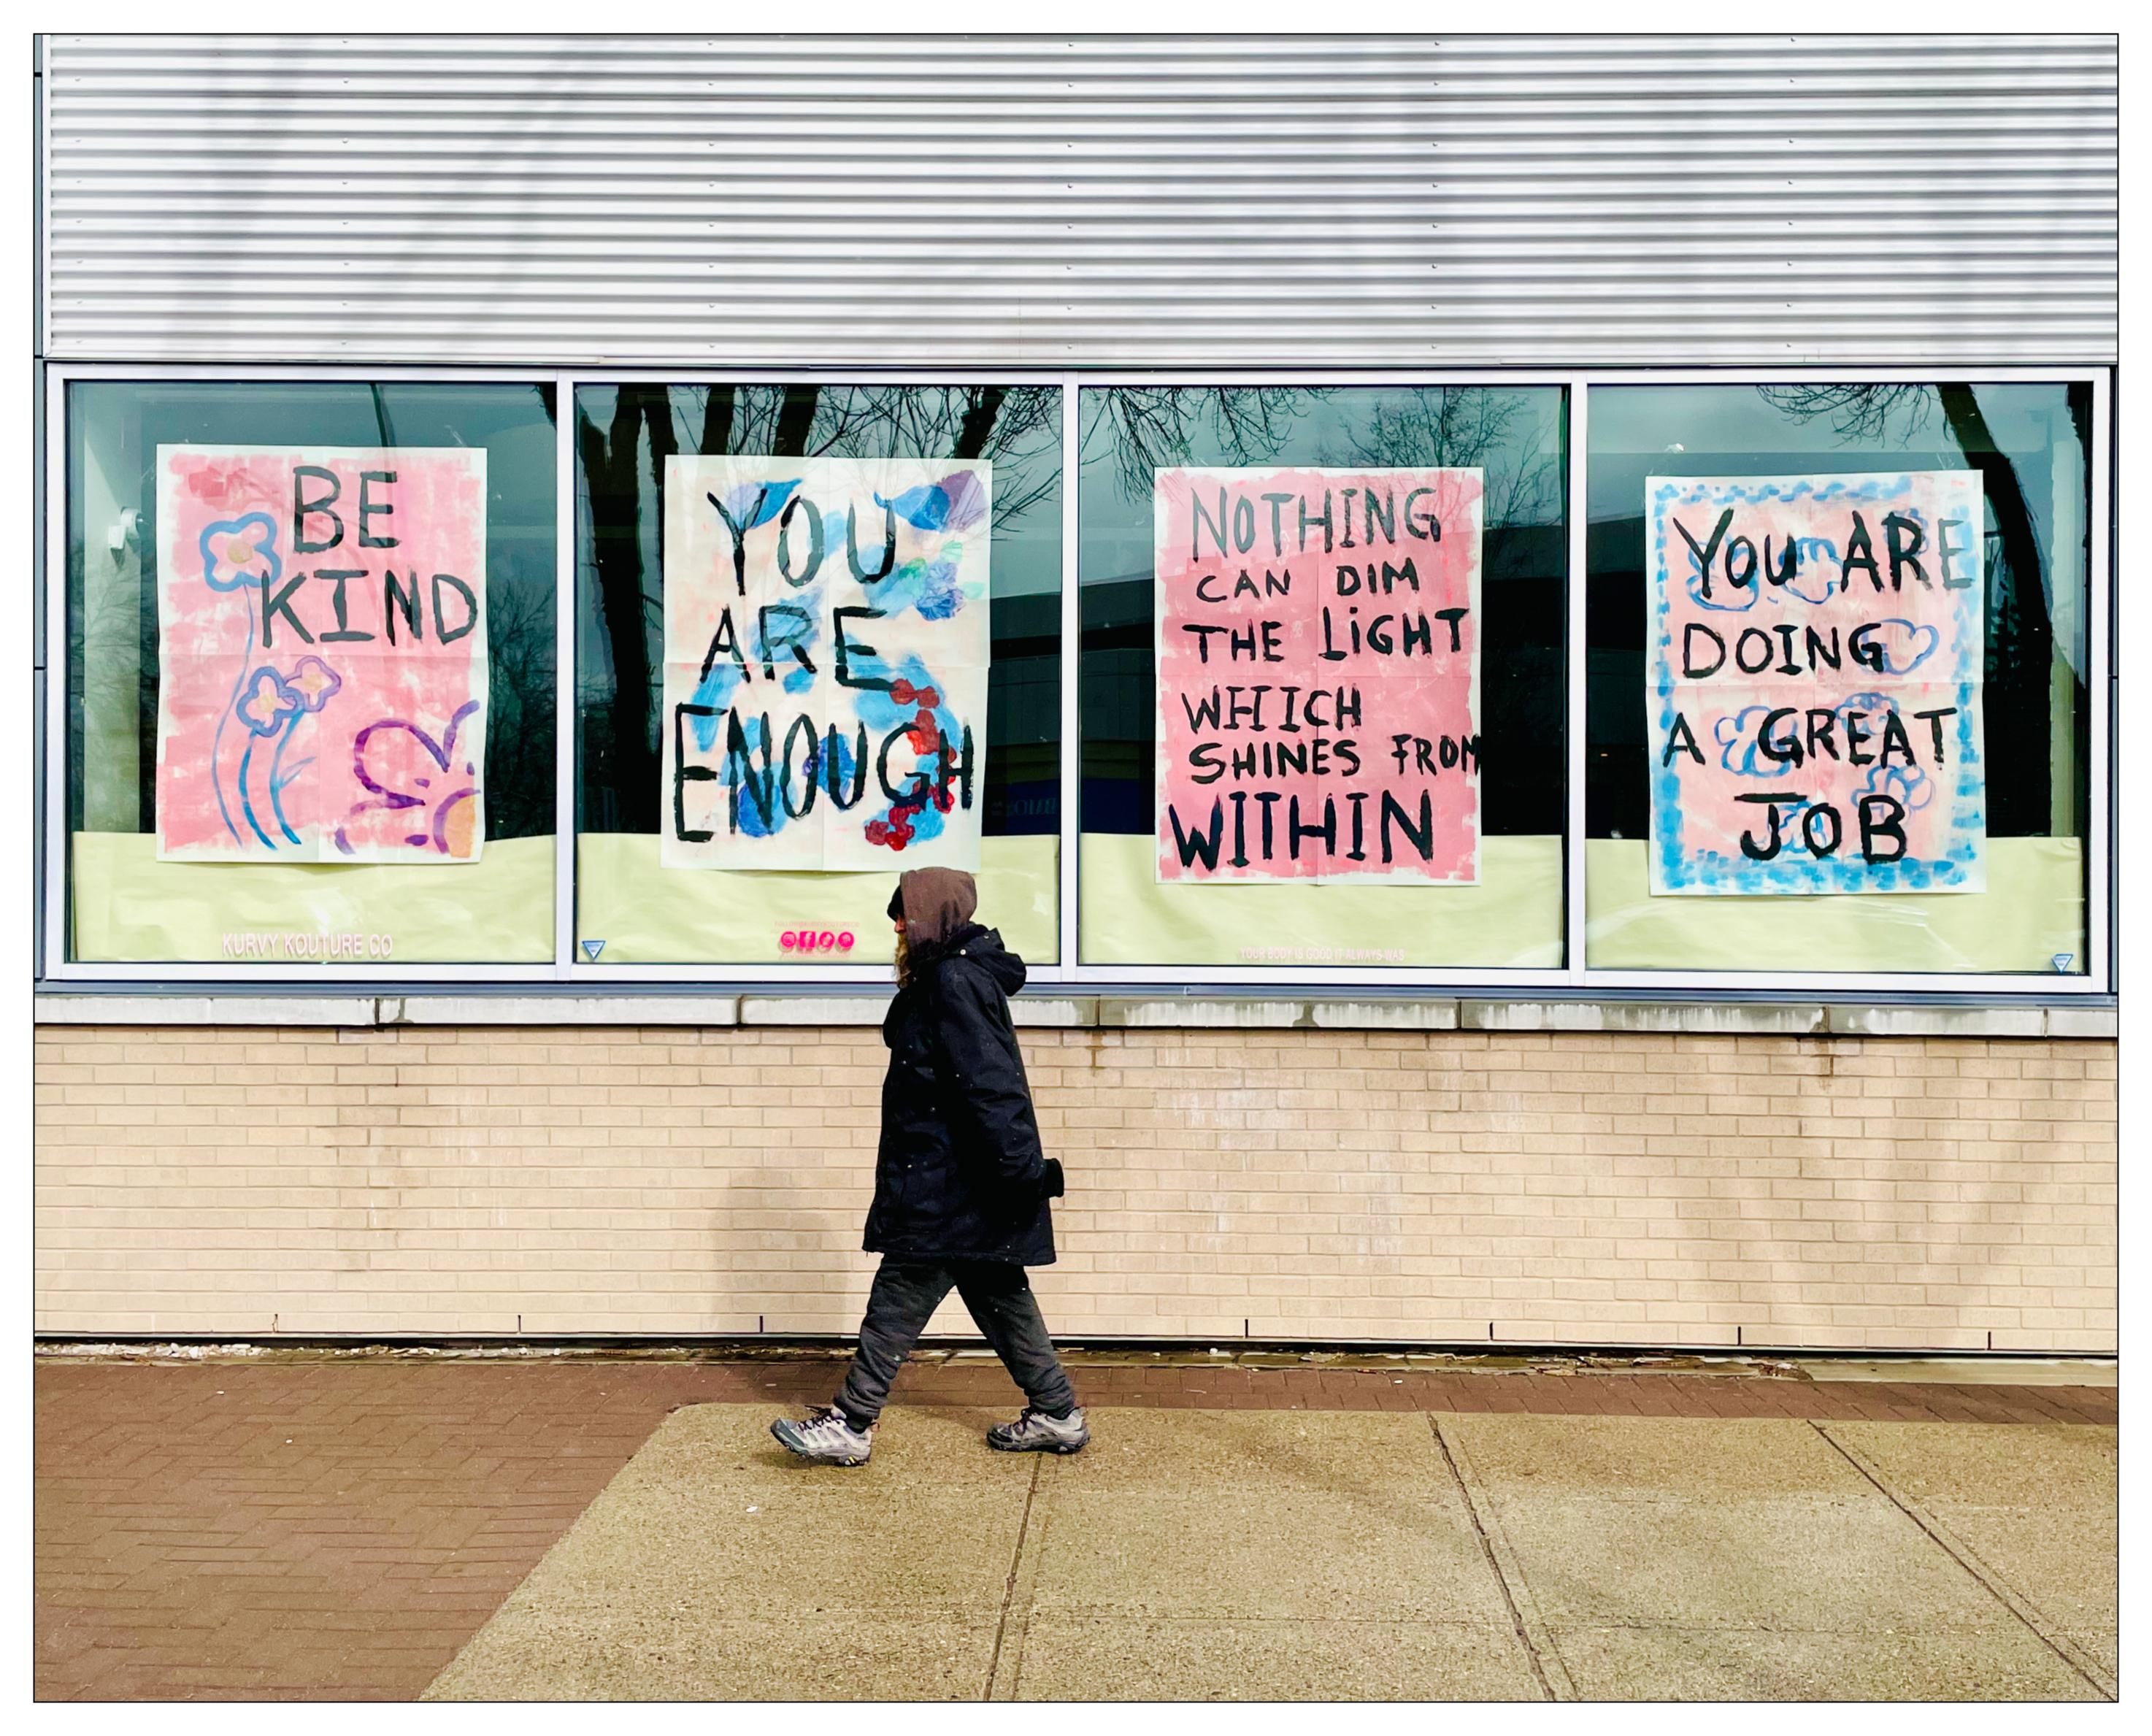 BE
KIND
YOU
ARE
ENOUGH
NOTHING
CAN DIM
THE LiGHT
WHICH
SHINES FROM
WITHIN
YOU ARE
DOING
A GREAT
JOB
KURVY KOUTURE CO
YOUR BODY IS GOOD IT ALWAYS WAS